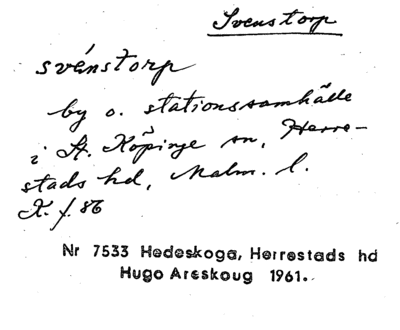 Svenstorp
svénstorp
by o. stationssamhälle
i St. Köpinge sn, Herre-
stads hd, Malm. l.
K. f. 86
Nr 7533 Hedeskoga, Herrestads hd
Hugo Areskoug 1961.